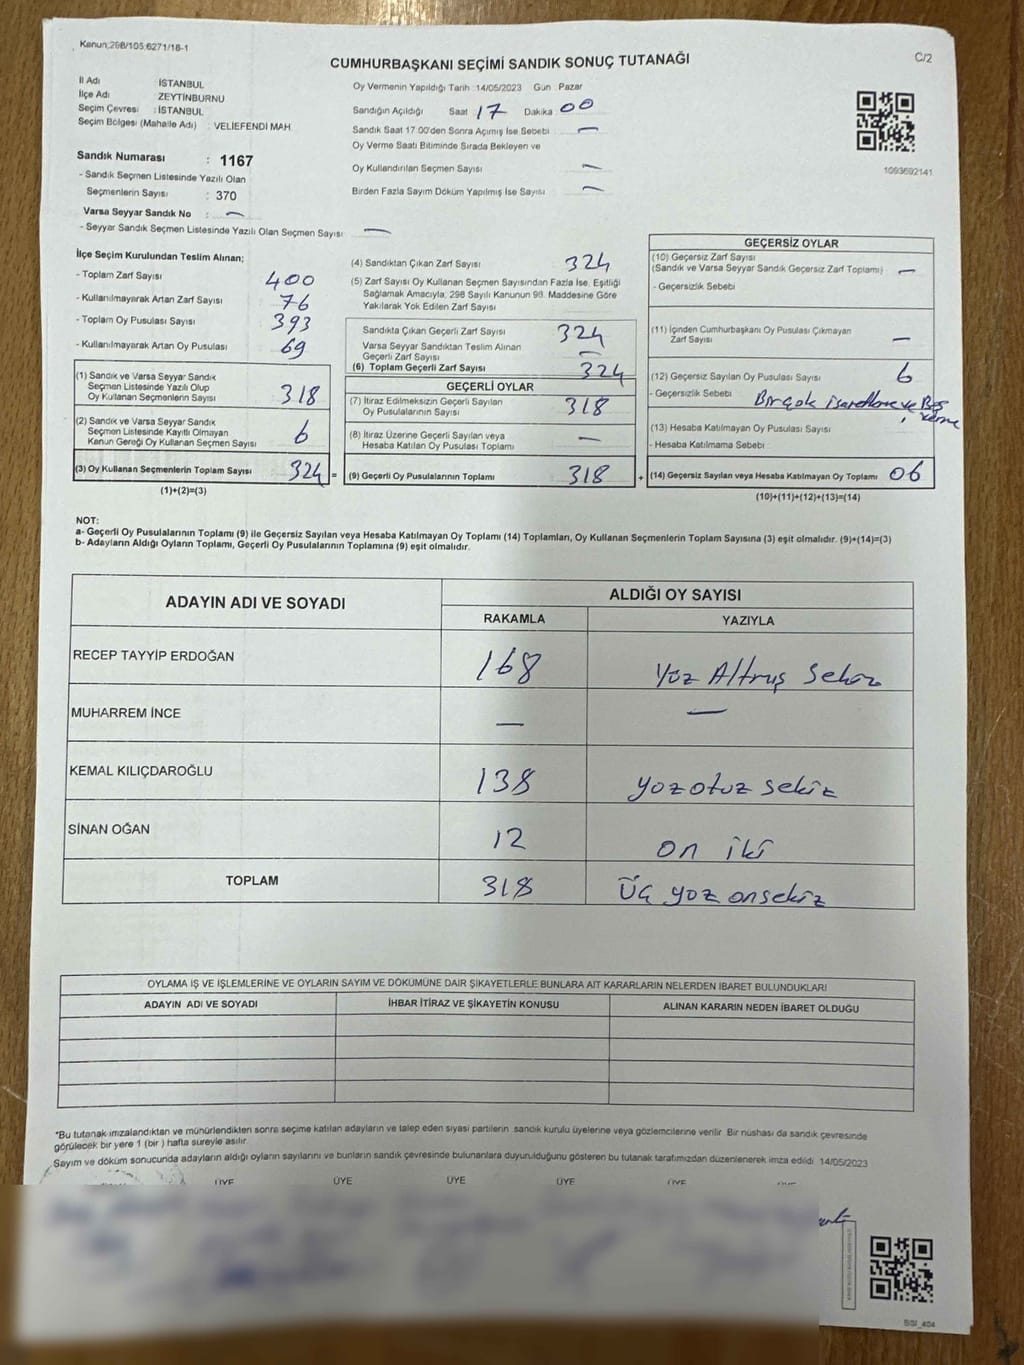 Kanun;298/105;6271/18-1
CUMHURBAŞKANI SEÇİMİ SANDIK SONUÇ TUTANAĞI
C/2
İl Adı İSTANBUL
İlçe Adı ZEYTİNBURNU
Seçim Çevresi : İSTANBUL
Seçim Bölgesi (Mahalle Adı) : VELİEFENDİ MAH.
Sandık Numarası : 1167
- Sandık Seçmen Listesinde Yazılı Olan
Seçmenlerin Sayısı : 370
Varsa Seyyar Sandık No : —
- Seyyar Sandık Seçmen Listesinde Yazılı Olan Seçmen Sayısı: —
Oy Vermenin Yapıldığı Tarih : 14/05/2023 Gün : Pazar
Sandığın Açıldığı Saat 17 Dakika 00
Sandık Saat 17:00'den Sonra Açımış İse Sebebi —
Oy Verme Saati Bitiminde Sırada Bekleyen ve
Oy Kullandırılan Seçmen Sayısı —
Birden Fazla Sayım Döküm Yapılmış İse Sayısı —
1093692141
İlçe Seçim Kurulundan Teslim Alınan;
- Toplam Zarf Sayısı 400
- Kullanılmayarak Artan Zarf Sayısı 76
- Toplam Oy Pusulası Sayısı 393
- Kullanılmayarak Artan Oy Pusulası 69
(1) Sandık ve Varsa Seyyar Sandık
Seçmen Listesinde Yazılı Olup
Oy Kullanan Seçmenlerin Sayısı 318
(2) Sandık ve Varsa Seyyar Sandık
Seçmen Listesinde Kayıtlı Olmayan
Kanun Gereği Oy Kullanan Seçmen Sayısı 6
(3) Oy Kullanan Seçmenlerin Toplam Sayısı 324 =
(1)+(2)=(3)
(4) Sandıktan Çıkan Zarf Sayısı 324
(5) Zarf Sayısı Oy Kullanan Seçmen Sayısından Fazla İse, Eşitliği
Sağlamak Amacıyla, 298 Sayılı Kanunun 98. Maddesine Göre
Yakılarak Yok Edilen Zarf Sayısı
Sandıkta Çıkan Geçerli Zarf Sayısı 324
Varsa Seyyar Sandıktan Teslim Alınan
Geçerli Zarf Sayısı —
(6) Toplam Geçerli Zarf Sayısı 324
GEÇERLİ OYLAR
(7) İtiraz Edilmeksizin Geçerli Sayılan
Oy Pusulalarının Sayısı 318
(8) İtiraz Üzerine Geçerli Sayılan veya
Hesaba Katılan Oy Pusulası Toplamı —
(9) Geçerli Oy Pusulalarının Toplamı 318 +
GEÇERSİZ OYLAR
(10) Geçersiz Zarf Sayısı
(Sandık ve Varsa Seyyar Sandık Geçersiz Zarf Toplamı) —
- Geçersizlik Sebebi
(11) İçinden Cumhurbaşkanı Oy Pusulası Çıkmayan
Zarf Sayısı —
(12) Geçersiz Sayılan Oy Pusulası Sayısı 6
- Geçersizlik Sebebi Birçok işaretleme ve Boş
(13) Hesaba Katılmayan Oy Pusulası Sayısı
- Hesaba Katılmama Sebebi
(14) Geçersiz Sayılan veya Hesaba Katılmayan Oy Toplamı 06
(10)+(11)+(12)+(13)=(14)
NOT:
a- Geçerli Oy Pusulalarının Toplamı (9) ile Geçersiz Sayılan veya Hesaba Katılmayan Oy Toplamı (14) Toplamları, Oy Kullanan Seçmenlerin Toplam Sayısına (3) eşit olmalıdır. (9)+(14)=(3)
b- Adayların Aldığı Oyların Toplamı, Geçerli Oy Pusulalarının Toplamına (9) eşit olmalıdır.
ADAYIN ADI VE SOYADI
ALDIĞI OY SAYISI
RAKAMLA YAZIYLA
RECEP TAYYİP ERDOĞAN 168 Yüz Altmış Sekiz
MUHARREM İNCE — —
KEMAL KILIÇDAROĞLU 138 yüz otuz sekiz
SİNAN OĞAN 12 on iki
TOPLAM 318 Üç yüz onsekiz
OYLAMA İŞ VE İŞLEMLERİNE VE OYLARIN SAYIM VE DÖKÜMÜNE DAİR ŞİKAYETLERLE BUNLARA AİT KARARLARIN NELERDEN İBARET BULUNDUKLARI
ADAYIN ADI VE SOYADI İHBAR İTİRAZ VE ŞİKAYETİN KONUSU ALINAN KARARIN NEDEN İBARET OLDUĞU
*Bu tutanak imzalandıktan ve mühürlendikten sonra seçime katılan adayların ve talep eden siyasi partilerin sandık kurulu üyelerine veya gözlemcilerine verilir. Bir nüshası da sandık çevresinde
görülecek bir yere 1 (bir ) hafta süreyle asılır.
Sayım ve döküm sonucunda adayların aldığı oyların sayılarını ve bunların sandık çevresinde bulunanlara duyurulduğunu gösteren bu tutanak tarafımızdan düzenlenerek imza edildi. 14/05/2023
ÜYE ÜYE ÜYE ÜYE ÜYE
BSI_404